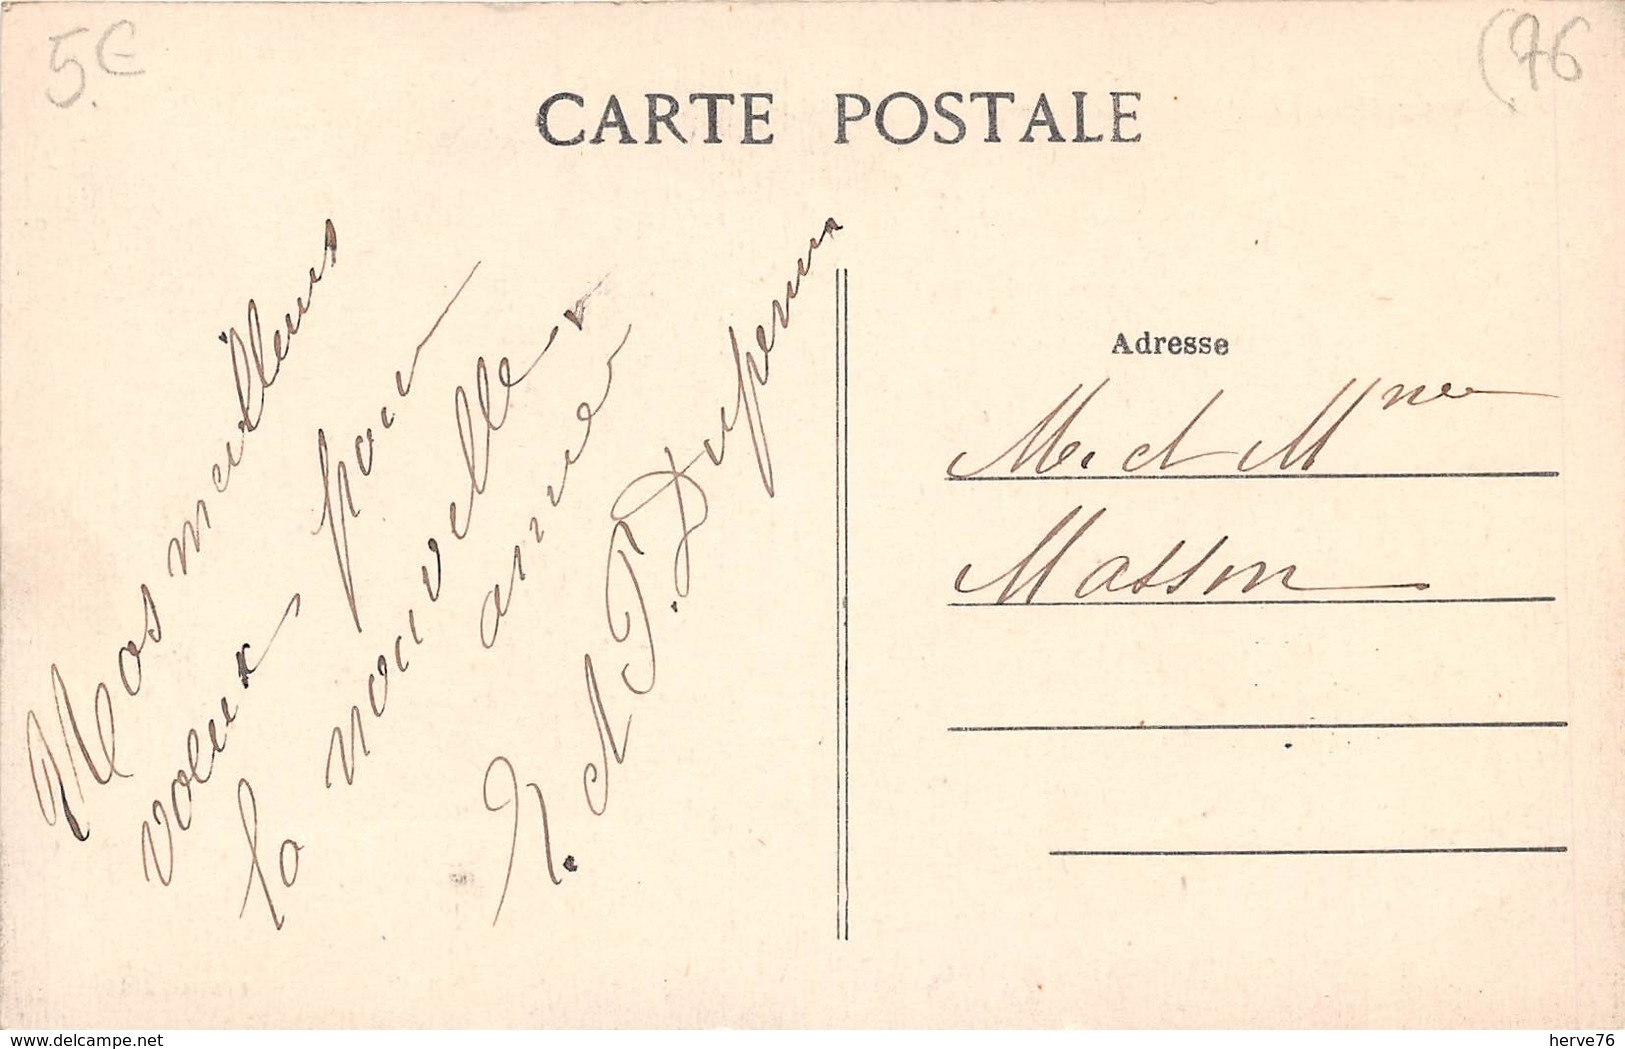 5.€
(76
CARTE POSTALE
Nos meilleurs
voeux pour
la nouvelle
année
P. Duperu
Adresse
M. et Mme
Masson
www.delcampe.net
herve76